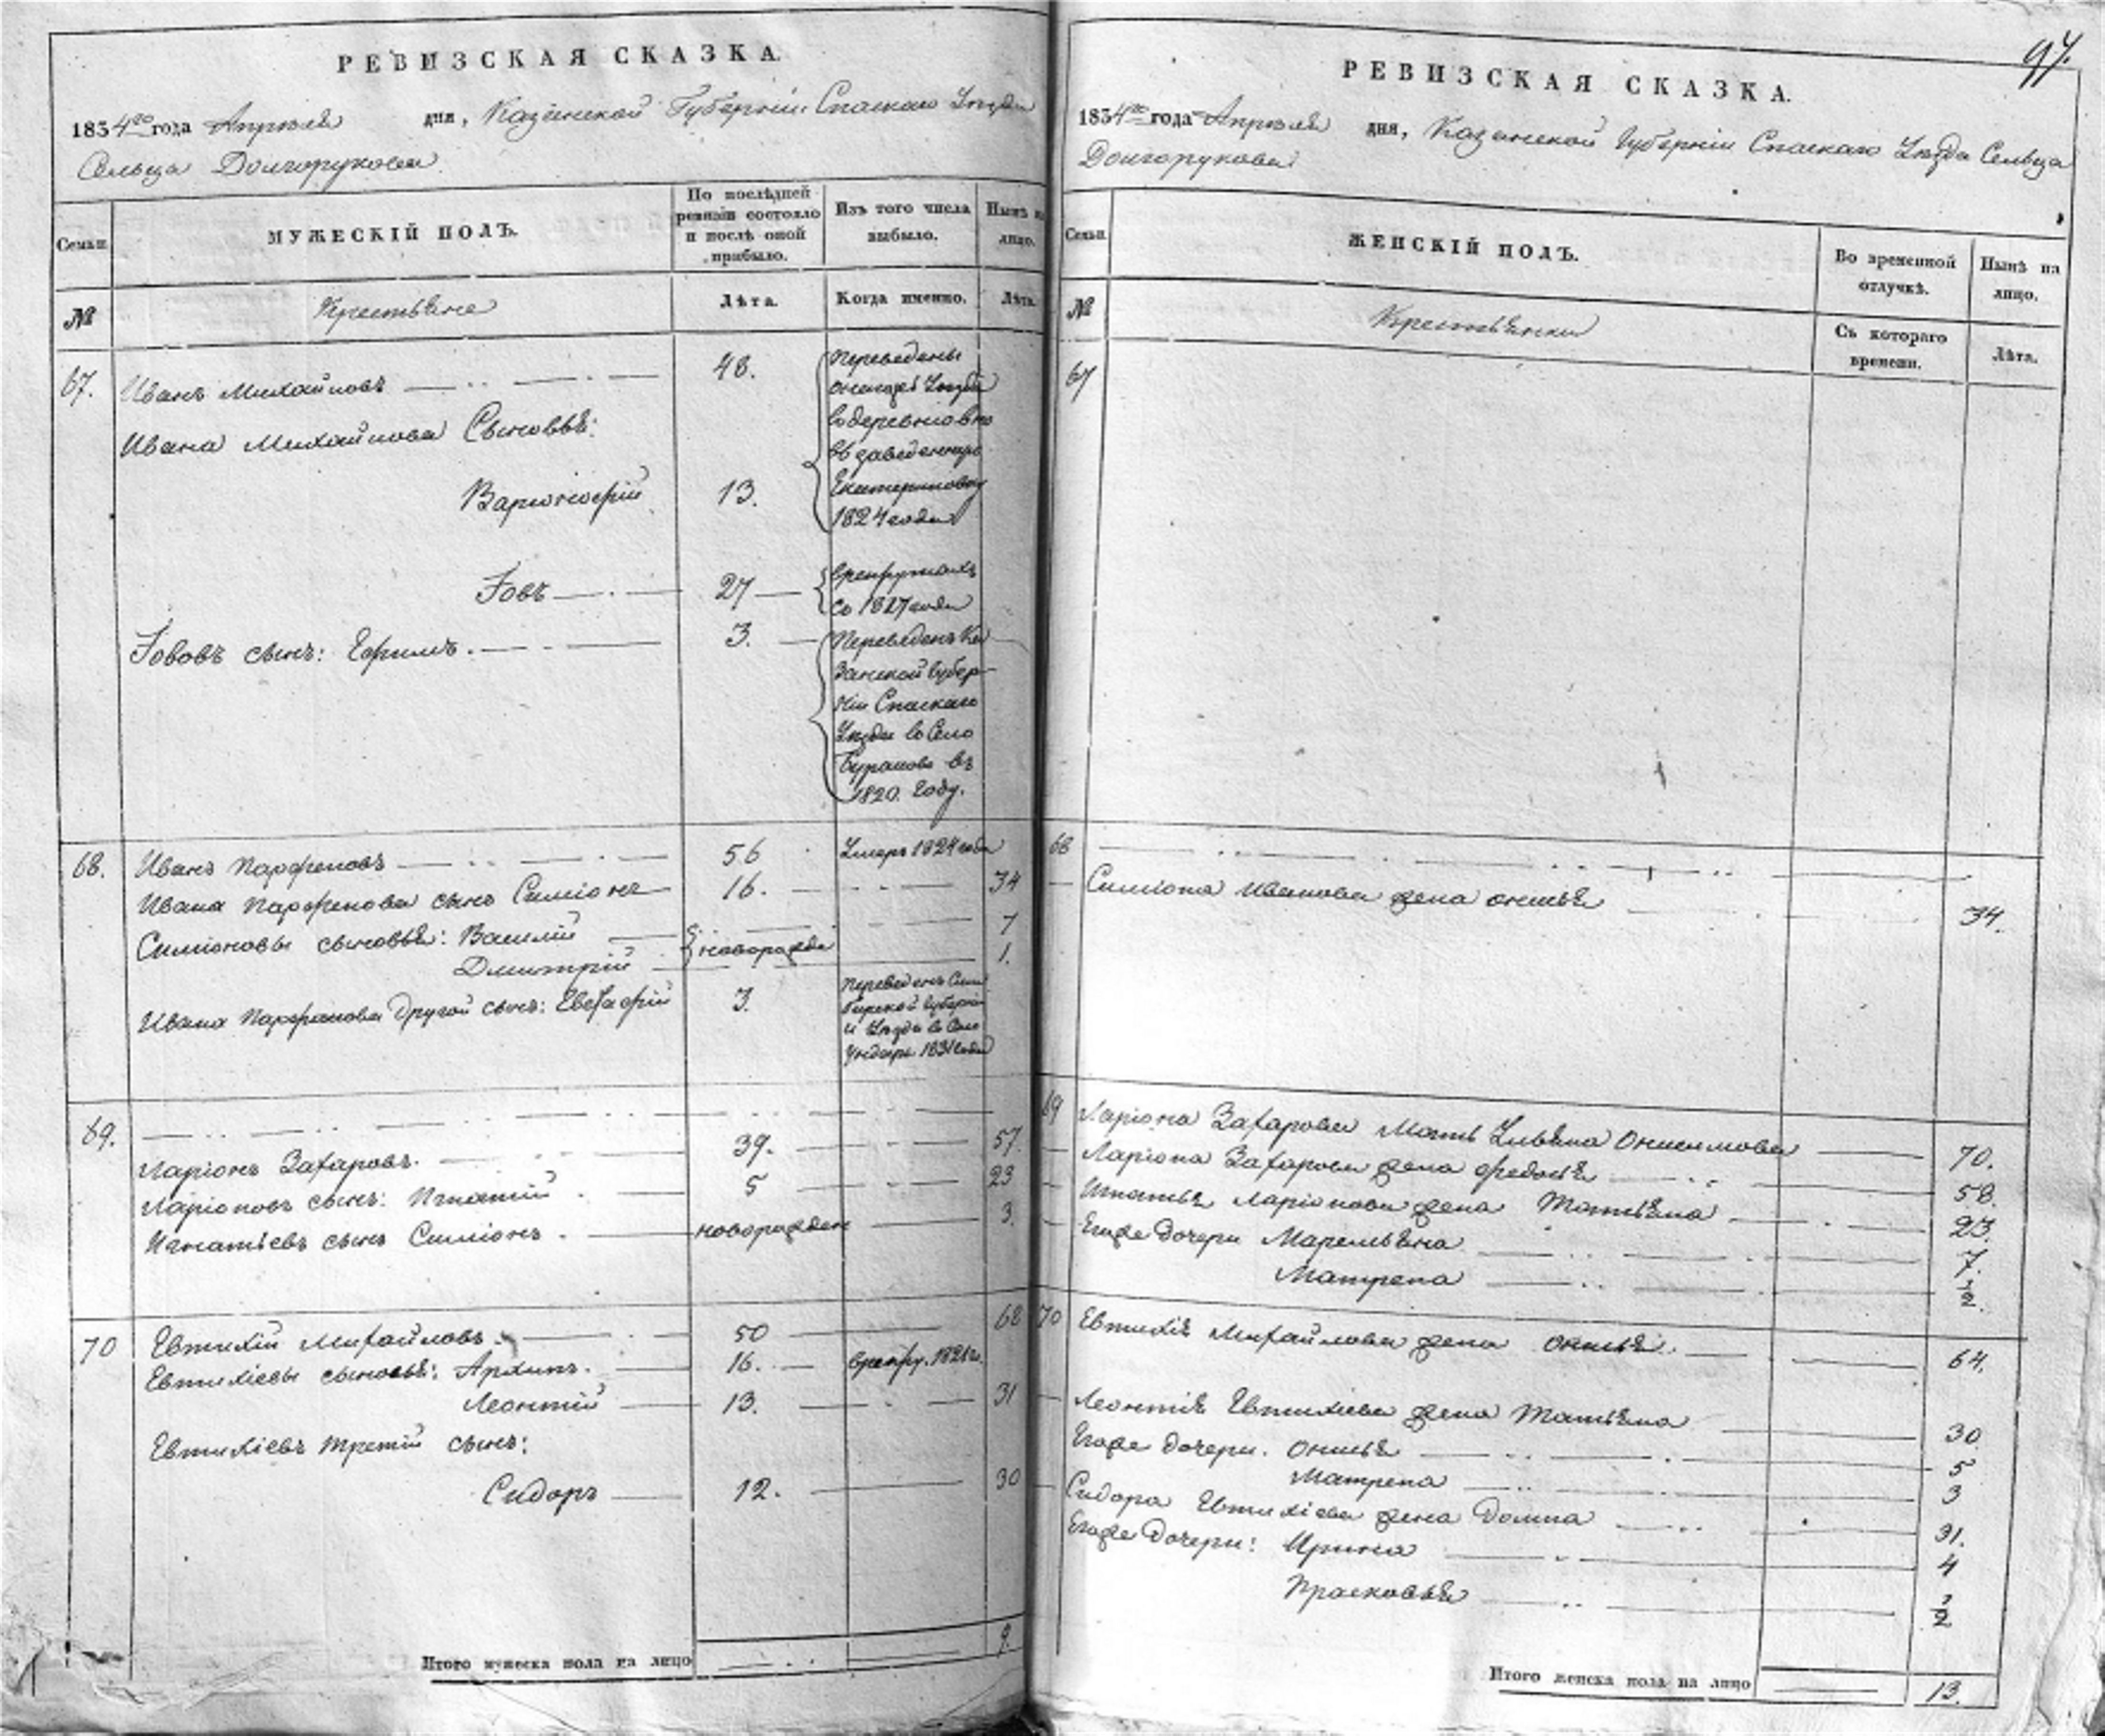 РЕВИЗСКАЯ СКАЗКА.
1834го года Апреля дня, Казанской Губернiи Спаскаго Уѣзда
Сельца Долгорукова
Семьи.
МУЖЕСКIЙ ПОЛЪ.
По послѣдней ревизiи состояло и послѣ оной прибыло.
Изъ того числа выбыло.
Нынѣ на лицо.
№
Крестьяне
Лѣта.
Когда именно.
Лѣта.
67.
Иванъ Михайловъ 48.
Переведены
Ивана Михайлова Сыновья:
Варфоломѣй 13.
Екатериновку
1824 года
Iовъ 27
в рекрутахъ
со 1827 года
Iововъ сынъ: Ефимъ. 3.
Переведенъ Ка
занской Губер
нiи Спаскаго
Уѣзда въ Село
Бураково въ
1820. Году.
68. Иванъ Парфеновъ 56 Умеръ 1824 года
Ивана Парфенова сынъ Симiонъ 16. 34
Симiоновы сыновья: Василiй новорожде 7
Дмитрiй 1.
Ивана Парфенова другой сынъ: Евстафiй 3.
Переведенъ Сим
бирской Губернiи
и Уѣзда въ Село
Ундоры 1831 года
69.
Ларiонъ Захаровъ. 39. 57.
Ларiоновъ сынъ: Игнатiй 5 23
Игнатьевъ сынъ Симiонъ. новорожден 3.
70 Евтихiй Михайловъ. 50 68
Евтихiевы сыновья: Архипъ. 16. в рекру. 1821 г.
Леонтiй 13. 31
Евтихiевъ третiй сынъ:
Сидоръ 12. 30
Итого мужеска пола на лицо 9.
97.
РЕВИЗСКАЯ СКАЗКА.
1834го года Апреля дня, Казанской Губернiи Спаскаго Уѣзда Сельца
Долгорукова
Семьи.
ЖЕНСКIЙ ПОЛЪ.
Во временной отлучкѣ.
Нынѣ на лицо.
№
Крестьянки
Съ котораго времени.
Лѣта.
67
68
Симiона Иванова жена Онисья 34.
69 Ларiона Захарова Мать Ульяна Онисимова 70.
Ларiона Захарова жена Федосья 58.
Игнатья Ларiонова жена Татьяна 23.
Егоже дочери Маремьяна 7.
Матрена 1/2.
70 Евтихiя Михайлова жена Онисья. 64.
Леонтiя Евтихiева жена Татьяна 30
Егоже дочери. Онисья 5
Матрена 3
Сидора Евтихiева жена Домна 31.
Егоже Дочери: Ирина 4
Прасковья 1/2
Итого женска пола на лицо 13.